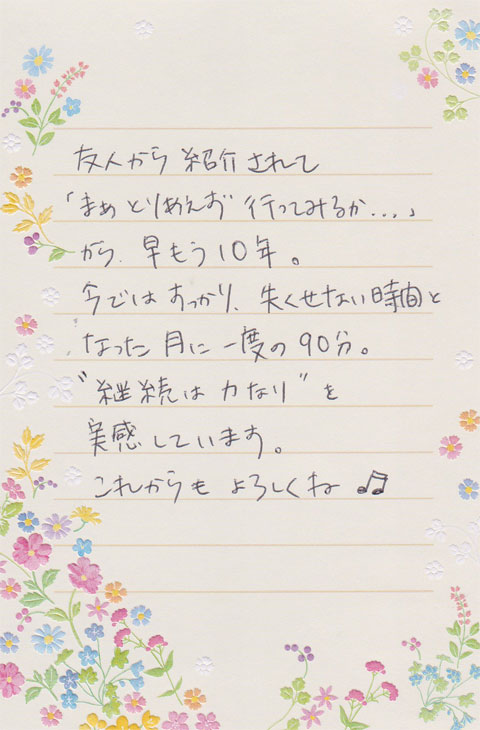 友人から紹介されて
「まぁとりあえず行ってみるか...」
から、早もう10年。
今ではすっかり、失くせない時間と
なった月に一度の90分。
"継続は力なり"を
実感しています。
これからもよろしくね♫